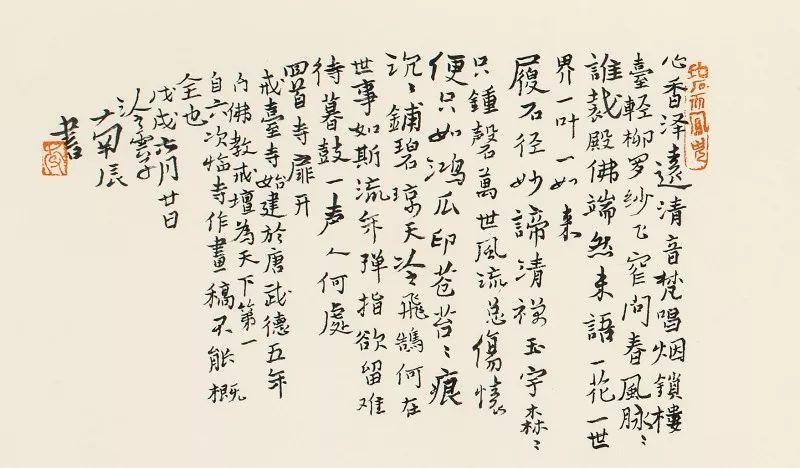 心香泽遠清音梵唱烟鎖樓
臺輕柳罗纱飞窄问春風脉〻
誰裁殿佛端然未語一花一世
界一叶一如来
履石径妙諦清禅玉宇森〻
只鍾磬萬世風流总傷懷
便只如鴻爪印苍苔〻痕
沉〻鋪碧琼天冷飛鵠何在
世事如斯流年弹指欲留难
待暮鼓一声人何處
四首寺扉开
戒臺寺始建於唐武德五年
内佛教戒壇為天下第一
自六次临寺作畫稿不能概
全也
戊戌六月廿日
菊辰
書